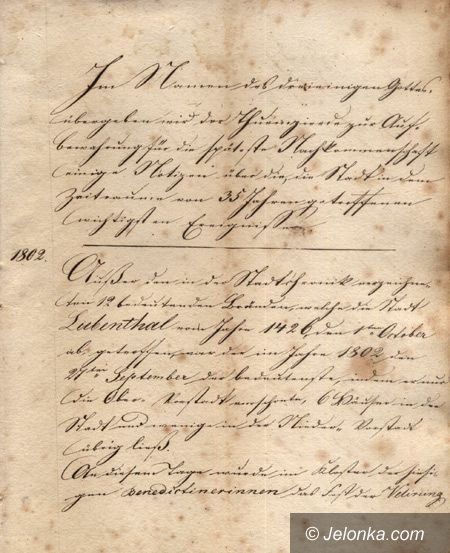 Im Namen des dreieinigen Gottes,
übergeben wird der Thurmzierde zur Auf-
bewahrung für die späteste Nachkommenschaft
einige Notizen über die, die Stadt in dem
Zeitraume von 35 Jahren getroffenen
wichtigsten Ereignisse.
1802.
Außer den in der Stadtchronik verzeichne-
ten 12 bedeutenden Bränden, welche die Stadt
Liebenthal vom Jahre 1426, den 1ten October
ab, getroffen, war der im Jahre 1802 den
September der bedeutenste, indem er nur
die Ober-Vorstadt verschonte, 6 Häuser in der
Stadt und wenige in der Nieder-Vorstadt
übrig ließ.
An diesem Tage wurde im Kloster der hiesi-
gen Benedictinerinnen das Fest der
© Jelonka.com